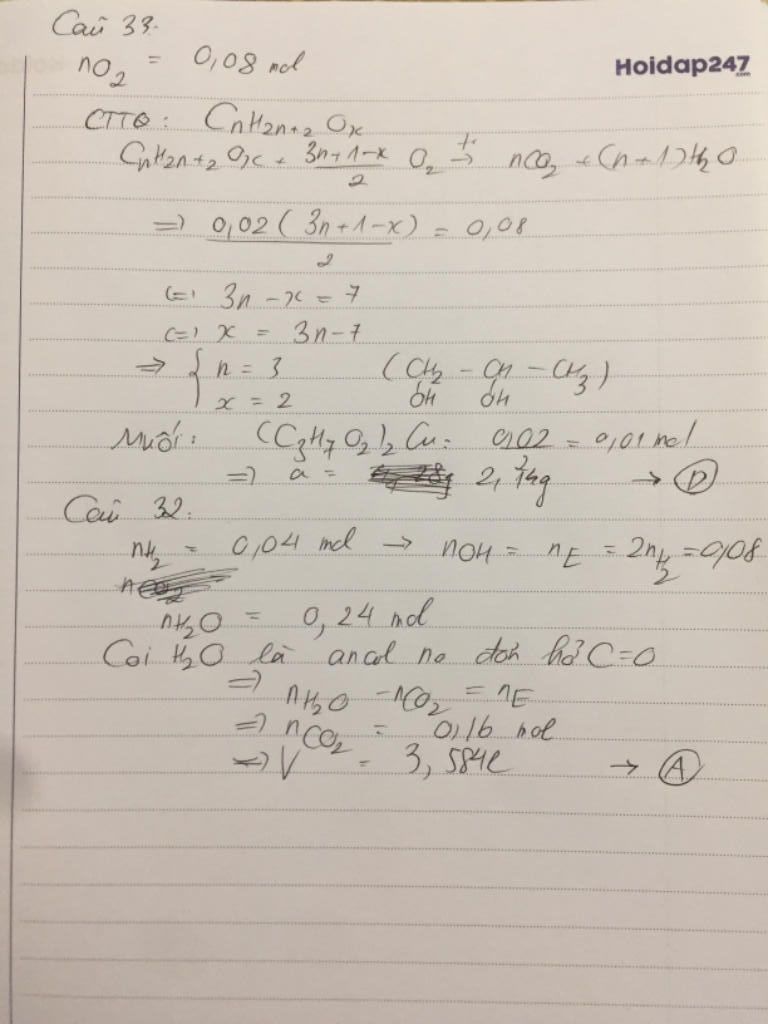 Câu 33.
nO2 = 0,08 mol
Hoidap247
.com
CTTQ: CnH2n+2Ox
CnH2n+2Ox + (3n+1-x)/2 O2 t°→ nCO2 + (n+1)H2O
=> 0,02(3n+1-x)/2 = 0,08
<=> 3n - x = 7
<=> x = 3n-7
=> { n = 3 (CH2 - CH - CH3)
x = 2 OH OH
Muối: (C3H7O2)2Cu = 0,02/2 = 0,01 mol
=> a = 2,14g → D
Câu 32.
nH2 = 0,04 mol → nOH = nE = 2nH2 = 0,08
nH2O = 0,24 mol
Coi H2O là ancol no đơn hở C=0
=> nH2O - nCO2 = nE
=> nCO2 = 0,16 mol
=> V = 3,584l → A